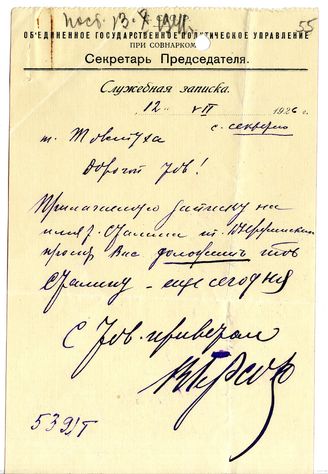 55
ОБЪЕДИНЕННОЕ ГОСУДАРСТВЕННОЕ ПОЛИТИЧЕСКОЕ УПРАВЛЕНИЕ
ПРИ СОВНАРКОМЕ
Секретарь Председателя.
Служебная записка.
12 VII 1926 г.
с. секретно
т. Товстуха
Дорогой тов!
Прилагаемую записку на
имя т. Сталина от т. Дзержинского
прошу Вас доложить тов
Сталину - еще сегодня
С тов. приветом
ВГерсон
539/Т